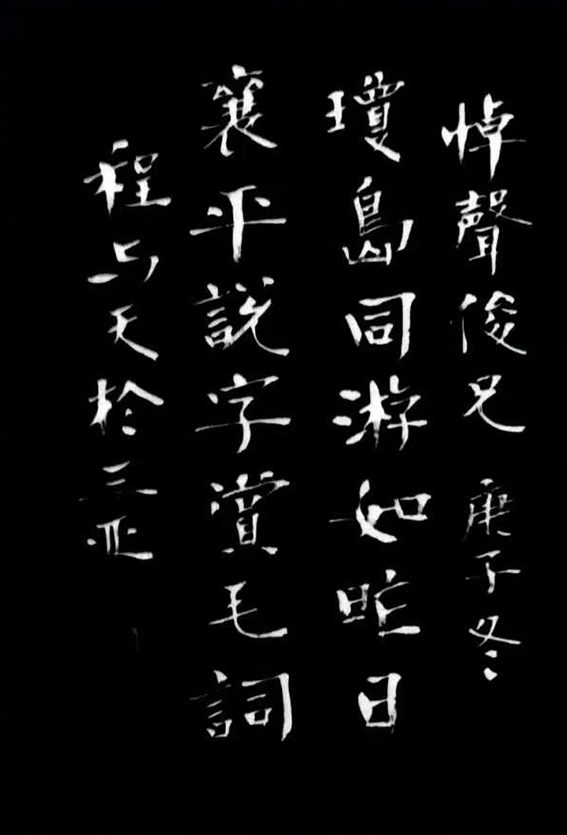 悼聲俊兄 庚子冬
瓊島同游如昨日
襄平說字賞毛詞
程与天於三亚